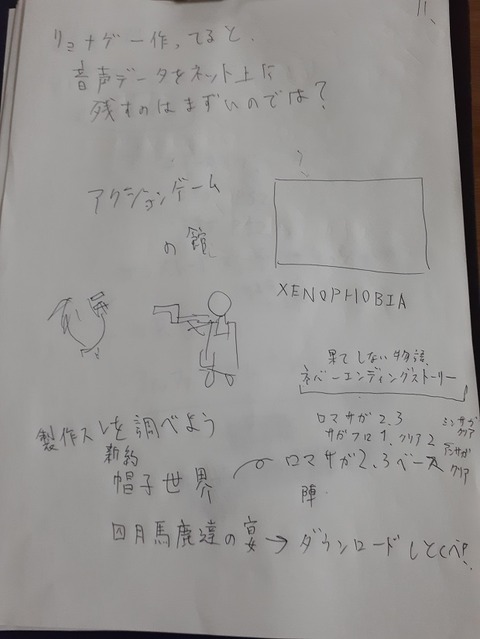 11、
リョナゲー作ってると、
音声データをネット上に
残すのはまずいのでは?
アクションゲーム
の館
?
XENOPHOBIA
果てしない物語、
ネバーエンディングストーリー
ロマサガ2.3
サガフロ1.クリア2
ミンサガ
クリア
アンサガ
クリア
製作スレを調べよう
新約
帽子世界
ロマサガ2.3ベース
陣
四月馬鹿達の宴→ダウンロードしとくべ!